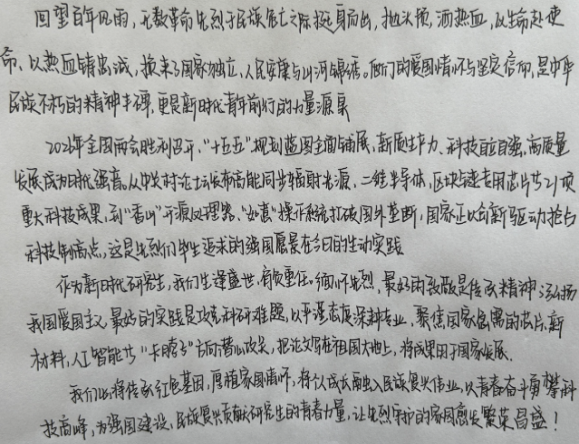 回望百年风雨,无数革命先烈于民族危亡之际挺身而出,抛头颅,洒热血,以生命赴使
命、以热血铸忠诚,换来了国家独立,人民安康与山河锦绣。他们的爱国情怀与坚定信仰,是中华
民族不朽的精神丰碑,更是新时代青年前行的力量源泉
2026年全国两会胜利召开,"十五五"规划蓝图全面铺展,新质生产力、科技自立自强、高质量
发展成为时代强音。从中关村论坛发布高能同步辐射光源、二维半导体,区块链专用芯片等21项
重大科技成果,到"香山"开源处理器、操作系统打破国外垄断,国家正以创新驱动抢占
科技制高点,这是先烈们毕生追求的强国愿景在今日的生动实践
作为新时代研究生,我们生逢盛世,肩负重任。缅怀先烈,最好的致敬是传承精神,弘扬
我国爱国主义,最好的实践是攻克科研难题,以严谨态度深耕专业,聚焦国家急需的芯片,新
材料,人工智能等"卡脖子"方向潜心攻关,把论文写在祖国大地上,将成果用于国家发展。
我们必将传承红色基因,厚植家国情怀,将个人成长融入民族复兴伟业,以青春奋斗勇攀科
技高峰,为强国建设,民族复兴贡献研究生的青春力量,让先烈守护的家国愈发繁荣昌盛!